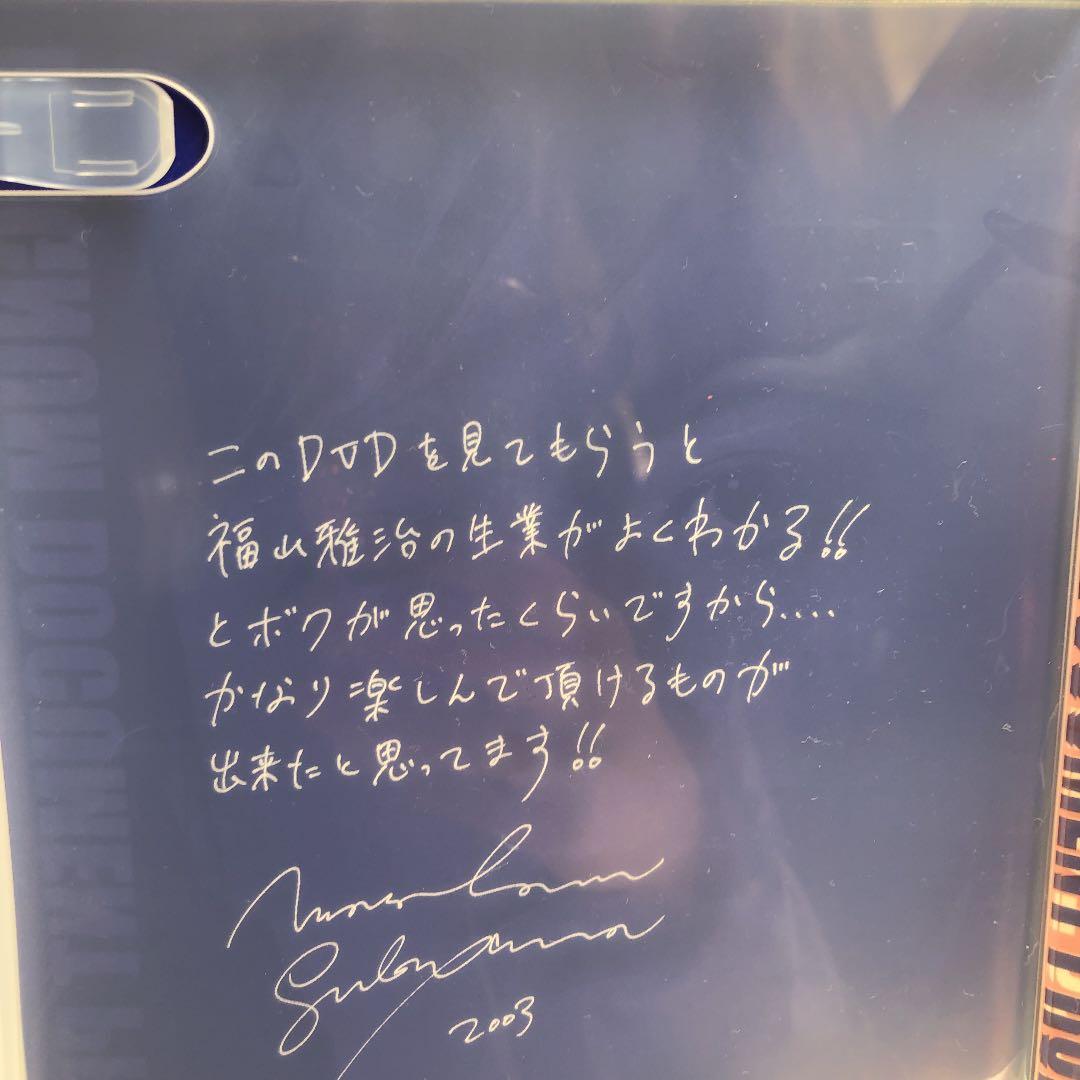 このDVDを見てもらうと
福山雅治の生業がよくわかる!!
とボクが思ったくらいですから....
かなり楽しんで頂けるものが
出来たと思ってます!!
2003